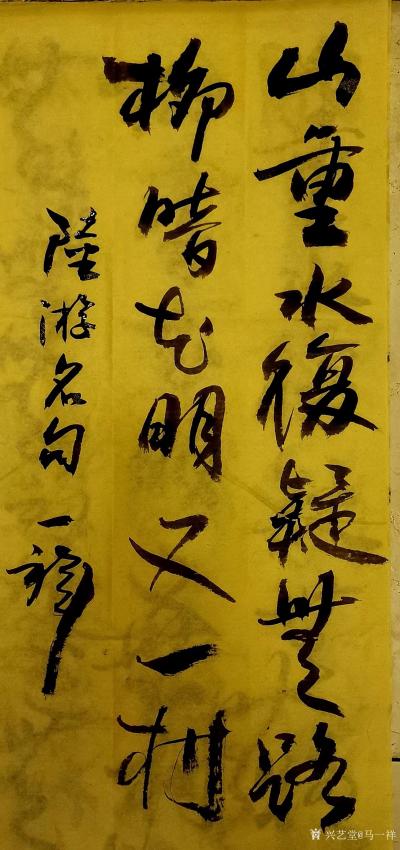 山重水復疑無路
柳暗花明又一村
陸游名句 一祥
兴艺堂@马一祥